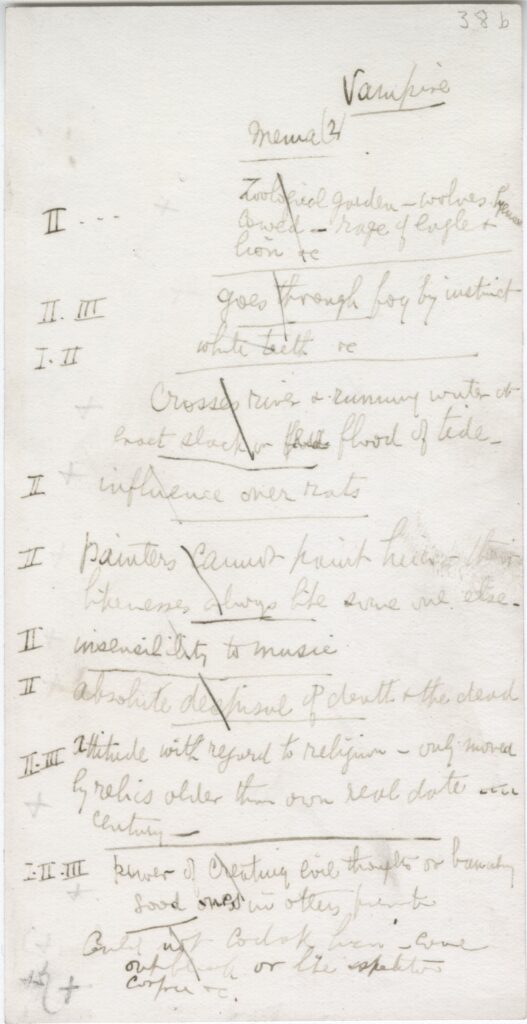 38 b
Vampire
Mema (2)
II ---- Zoological garden – wolves hyenas
cowed – rage of eagle &
lion &c
II. III goes through fog by instinct
I. II white teeth &c
Crosses river & running water at
exact slack or flood of tide –
II influence over rats
II painters cannot paint him – their
likenesses always like some one else –
II insensibility to music
II absolute despisal of death & the dead
II-III attitude with regard to religion – only moved
by relics older than own real date ----
century –
I. II. III power of creating evil thoughts or banishing
good ones in others present
Could not codak him – come
out black or like skeleton
corpse &c.